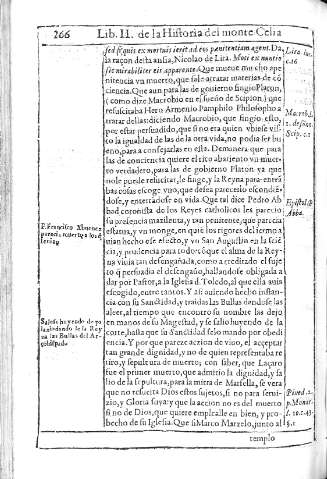 266 Lib. II. de la Historia del monte Celia
sed si quis ex mortuis ierit ad eos pœnitentiam agent. Da
la raçon desta ansia, Nicolao de Lira. Moti ex nuntio
sit mirabiliter eis apparente. Que mueve mucho ape
nitencia vn muerto, que sale a tratar materias de cõ
ciencia. Que aun para las de gouierno fingio Platon,
(como dize Macrobio en el sueño de Scipion) que
resuscitaba Hero Armenio Pamphilo Philosopho a
tratar dellas: diciendo Macrobio, que fingio esto,
por estar persuadido, que si no era quien viuiese vis-
to la igualdad de las de la otra vida, no podia ser bue
no, para aconsejarlas en esta. Demanera que para
las de conciente quiere el rico abariento vn muer-
to verdadero, para las de gobierno Platon ya que
no le puede resucitar, le finge, y la Reyna para entrã
bas cosas escoge vno, que desea parecerlo escondiẽ-
dose, y enterrãdose en vida. Que tal dice Pedro Ab
bad coronista de los Reyes catholicos les parecio
su presencia muerta, y tan penitente, que parecia
estatua, y vn monge, en quiẽ los rigores del iermo a
uian hecho ese efecto, y vn San Augustin en la sciẽ
cia, y prudencia para todo: cõ que el alma de la Rey-
na viuia tan desengañada, como acreditado el suje
to q̃ persuadia el desengaño, hallandose obligada a
dar por Pastor, a la Iglesia d Toledo, al que ella auia
escogido, entre tantos. Y asi auiendo hecho instan-
cia con su Sanctidad, y traidas las Bullas dandose las
a leer, al tiempo que encontro su nombre las dejo
en manos de su Magestad, y se salio huyendo de la
corte, hasta que su Sanctidad se lo mando por obedi
encia. Y por que parezca accion de vivo, el acceptar
tan grande dignidad, y no de quien representaba re
tiro, y sepultura de muerto, con saber, que Laçaro
fue el primer muerto, que admitio la dignidad, y sa
lio de la sepultura, para la mitra de Marsella, se vera
que no resucita Dios estos sujetos, si no para serui-
zio, y Gloria suya: y que la accion no es del muerto
si no de Dios, que quiere emplealle en bien, y pro-
becho de su Iglesia. Que si Marco Marcelo, junto al
templo
Lira luc.
c. 16
Macrob. l.
Scip. c. 1
P. Francisco Ximenez
parecia muerto, y lo de
Epistol.
Abba.
Saliose huyendo de pa
lacio dandole la Rey
na las Bullas del Ar-
çobispado
Pined. 2.
p. Monar.
l. 10. c. 23.
§. 1